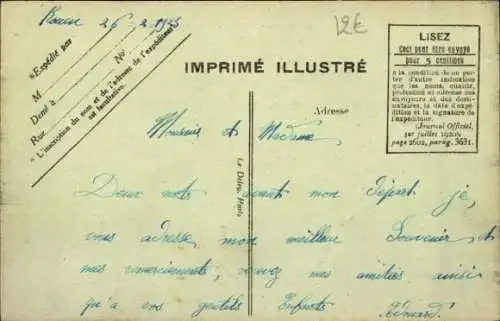 Rouen 26 2 1925
12€
LISEZ
Ceci peut être envoyé
pour 5 centimes
à la condition de ne por-
ter d'autre indication
que les nom, qualité,
profession et adresse des
envoyeurs et des desti-
nataires, la date d'expé-
dition et la signature de
l'expéditeur.
(Journal Officiel,
1er juillet 1920,
page 2602, parag. 3631.
"Expédié par
M
N°
Demt à
Rue
"L'inscription du nom et de l'adresse de l'expéditeur
est facultative.
IMPRIMÉ ILLUSTRÉ
Adresse
Monsieur et Madame
Le Deley, Paris
Deux mots avant mon départ je
vous adresse mon meilleur Souvenir et
mes remerciements, recevez mes amitiés ainsi
qu'a vos gentils Enfants